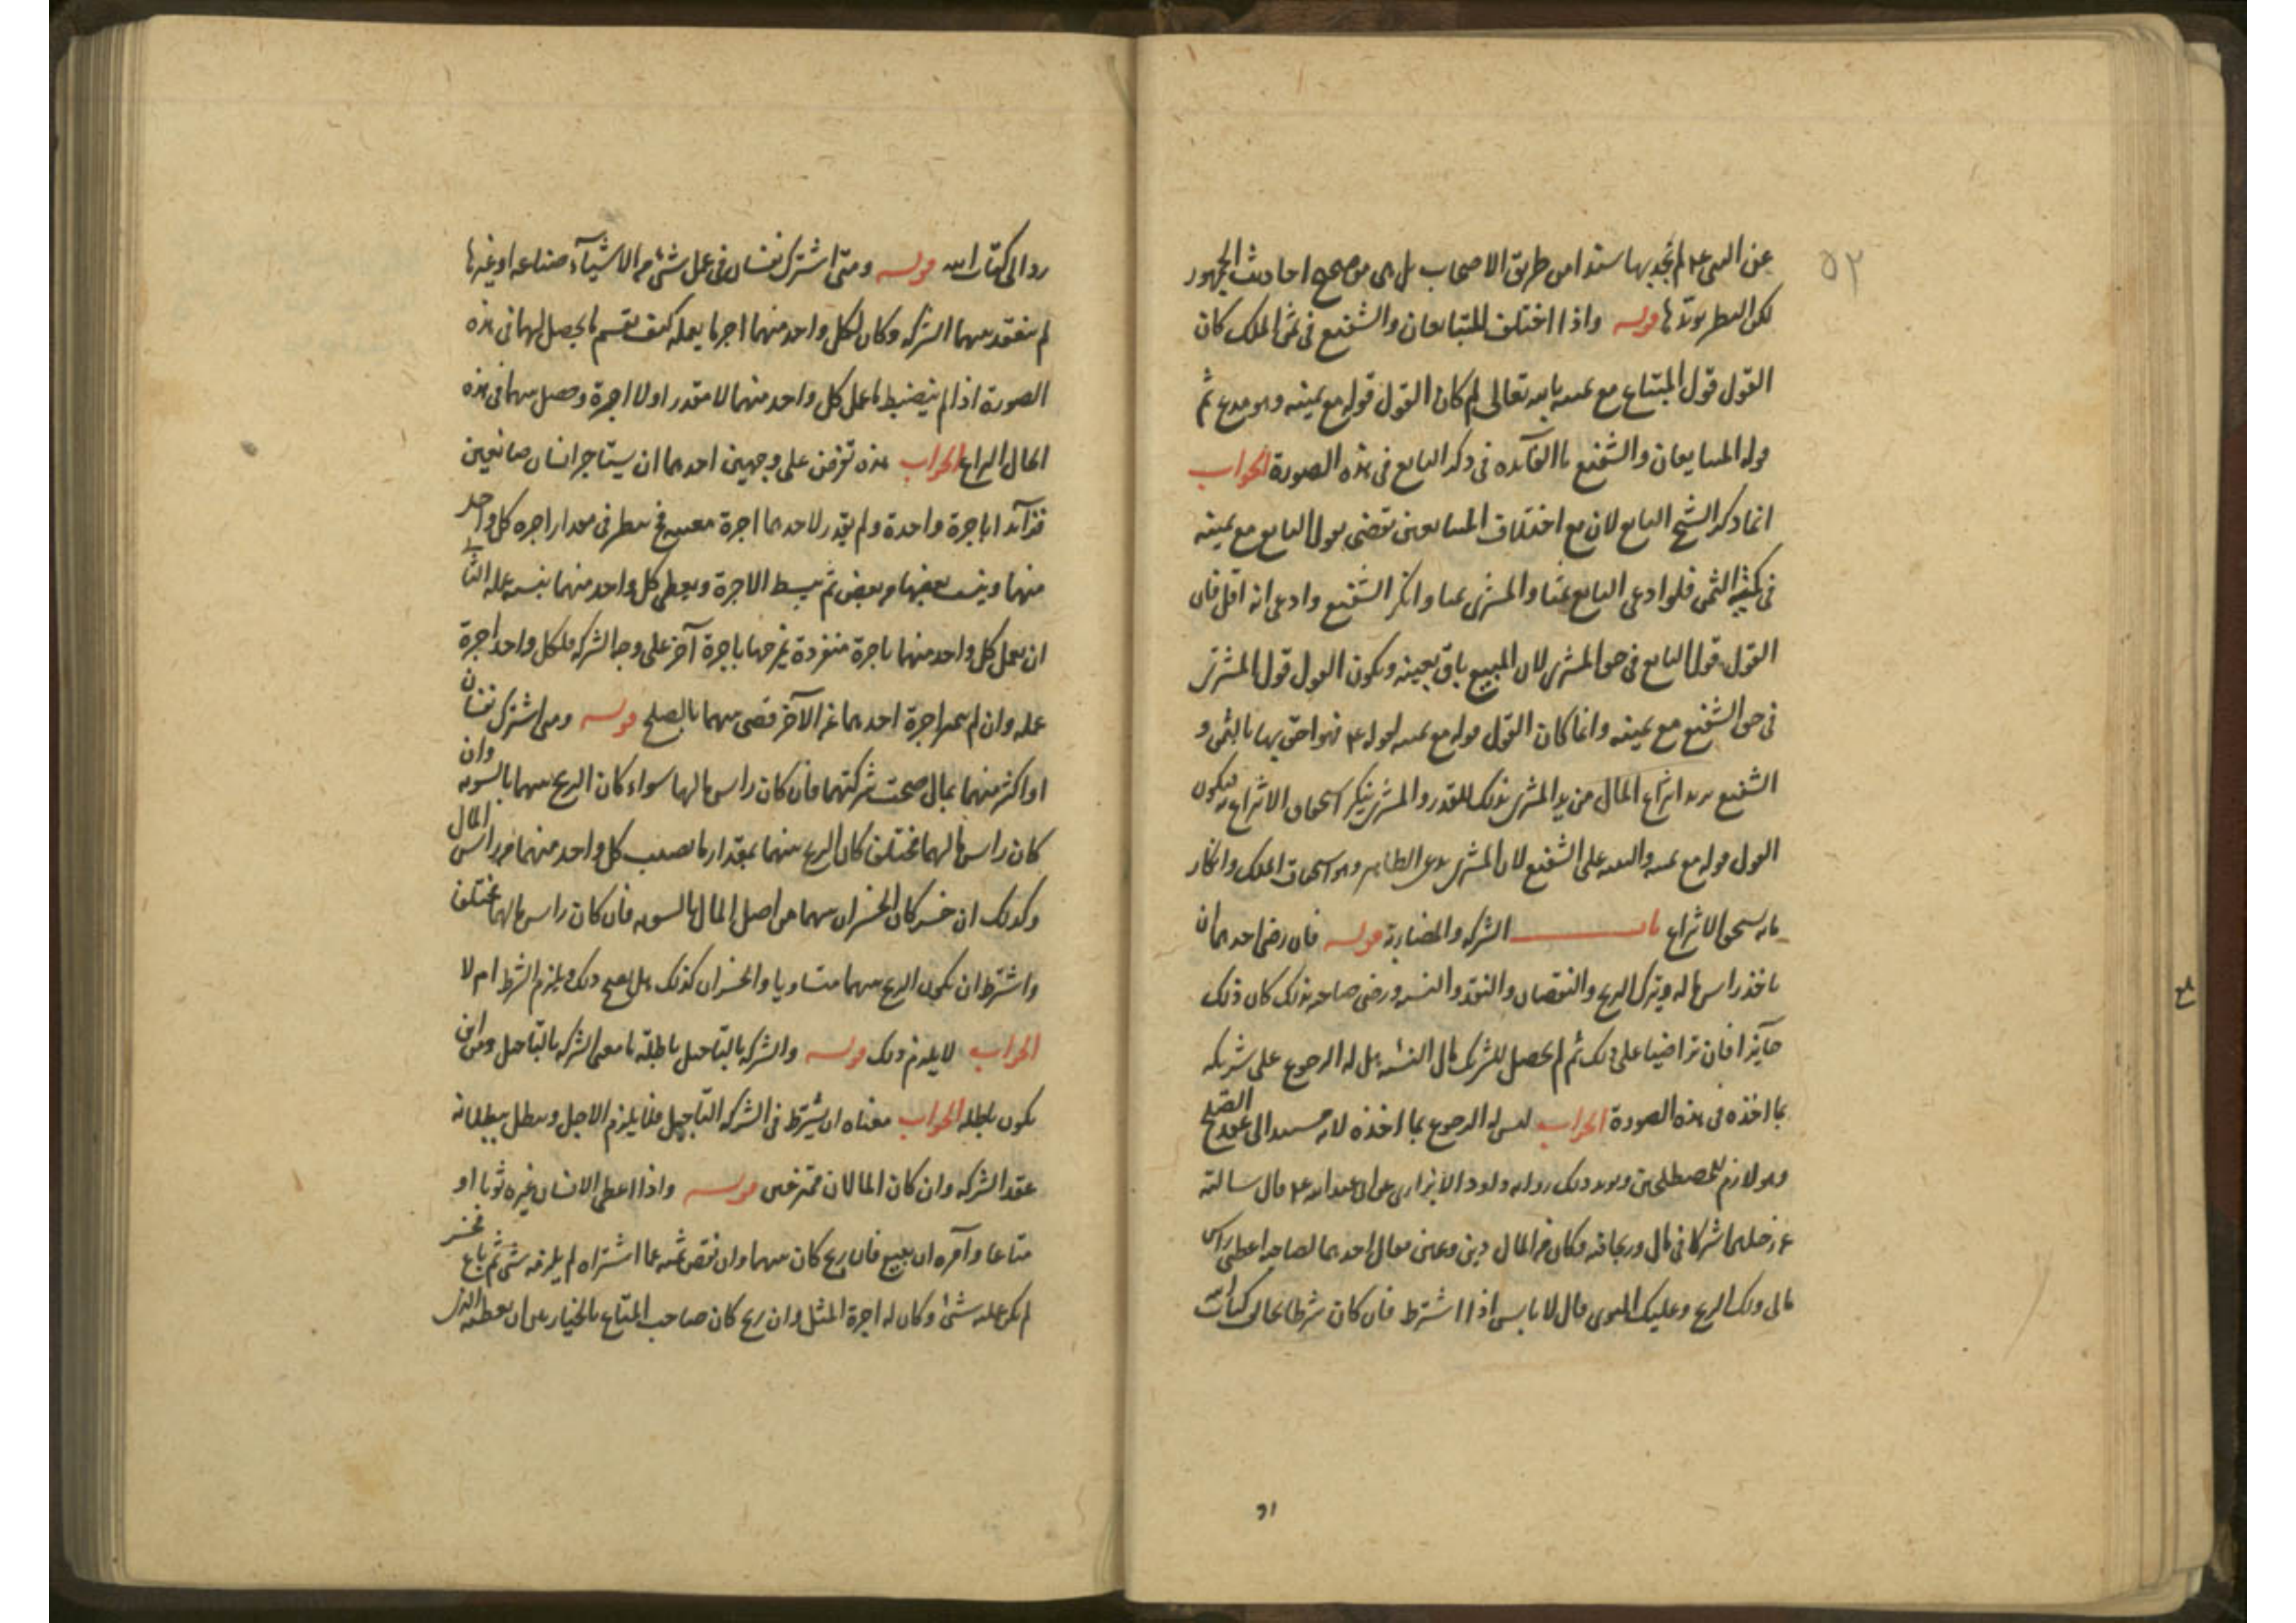 ٥٢
عن النبي ع م لم نجد بها سندا من طريق الاصحاب بل هي من صحيح احاديث الجمهور
لكن النظر يؤيدها قوله واذا اختلف المتبايعان والشفيع في ثمن الملك كان
القول قول المبتاع مع يمينه بالله تعالى لم كان القول قوله مع يمينه وهو مدع ثم
قوله المتبايعان والشفيع ما الفائده في ذكر البايع في هذه الصورة الجواب
انما ذكر الشيخ البايع لان مع اختلاف المتبايعين نقضى بقول البايع مع يمينه
في كمية الثمن فلو ادعى البايع ثمنا والمشتري ثمنا وانكر الشفيع وادعى انه اقل فان
القول قول البايع في حق المشتري لان المبيع باق بعينه ويكون القول قول المشتري
في حق الشفيع مع يمينه وانما كان القول قوله مع يمينه لقوله ع م فهو احق بها بالثمن و
الشفيع يريد انتزاع المال من يد المشتري بذلك القدر والمشتري ينكر استحقاق الانتزاع به فيكون
القول قوله مع يمينه والبينه على الشفيع لان المشتري يدعى الظاهر وهو استحقاق الملك وانكار
ما به يستحق الانتزاع باب الشركه والمضاربة قوله فان رضى احدهما ان
ياخذ راس ماله ويترك الربح والنقصان والنقد والنسيه ورضى صاحبه بذلك كان ذلك
جايزا فان تراضيا على ذلك ثم لم يحصل للشريك مال النسئه هل له الرجوع على شريكه
بما اخذه في هذه الصورة الجواب ليس له الرجوع بما اخذه لانه مستند الى عقد الصلح
وهو لازم للمصطلحين ويؤيد ذلك رواية داود الابزاري عن ابي عبد الله ع م قال سالته
عن رجلين اشتركا في مال وربحا فيه وكان من المال دين وعين فقال احدهما لصاحبه اعطني راس
مالي ولك الربح وعليك التوى قال لا باس اذا اشترط فان كان شرطا يخالف كتاب الله
١د
رد الى كتاب الله قوله ومتى اشترك نفسان في عمل شئ من الاشيآء صناعه او غيرها
لم ينعقد بينهما الشركه وكان لكل واحد منهما اجر ما يعمله كيف يقسم ما يحصل لهما في هذه
الصورة اذا لم ينضبط ما عمل كل واحد منهما لا مقدرا ولا اجرة وحصل بينهما في هذه
الحال النزاع الجواب هذه تفرض على وجهين احدهما ان يستاجر انسان صانعين
فزآئدا باجرة واحدة ولم يقدر لاحدهما اجرة معينه فينظر في مقدار اجره كل واحد
منهما وينسب بعضها من بعض ثم يبسط الاجرة ويعطى كل واحد منهما بنسبه عمله الثاني
ان يعمل كل واحد منهما باجرة منفردة يمزجها باجرة الآخر على وجه الشركه فلكل واحد اجرة
عمله وان لم يتميز اجرة احدهما عن الآخر قضى بينهما بالصلح قوله ومتى اشترك نفسان
او اكثر منهما بمال صحت شركتهما فان كان راس مالهما سواء كان الربح بينهما بالسويه وان
كان راس مالهما مختلف كان الربح بينهما بمقدار ما يصيب كل واحد منهما من راس المال
وكذلك ان خسر كان الخسران بينهما من اصل المال بالسويه فان كان راس مالهما مختلف
واشترط ان يكون الربح بينهما متساويا والخسران كذلك هل يصح ذلك ويلزم الشرط ام لا
الجواب لا يلزم ذلك قوله والشركه بالتاجيل باطلة ما معنى الشركه بالتاجيل ومن اين
يكون باطله الجواب معناه ان يشترط في الشركه التاجيل فلا يلزم الاجل ويبطل ببطلانه
عقد الشركه وان كان المالان ممتزجين قوله واذا اعطى الانسان غيره ثوبا او
متاعا وآمره ان يبيع فان ربح كان بينهما وان نقص ثمنه عما اشتراه لم يلزمه شئ ثم باع فخسر
لم يكن عليه شئ وكان له اجرة المثل وان ربح كان صاحب المتاع بالخيار بين ان يعطيه الذي